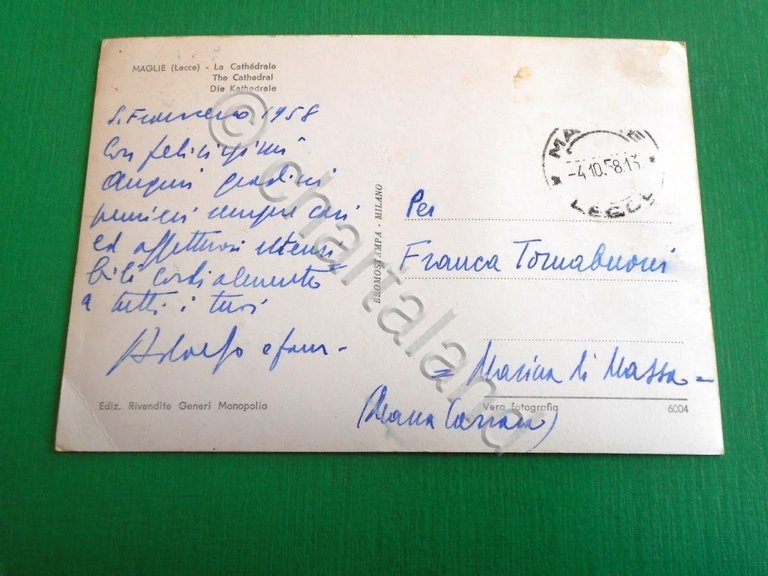 MAGLIE (Lecce) - La Cathédrale
The Cathedral
Die Kathedrale
S. Francesco 1958
Con felicissimi
auguri graditi
pensieri sempre cari
ed affettuosi estensi-
bili cordialmente
a tutti i tuoi
Adolfo e fam -
Ediz. Rivendite Generi Monopolio
BROMOSTAMPA - MILANO
MAGLIE
-4.10.58.13
LECCE
Per
Franca Tornabuoni
= Marina di Massa =
(Massa Carrara)
Vera fotografia
6004
© chartaland